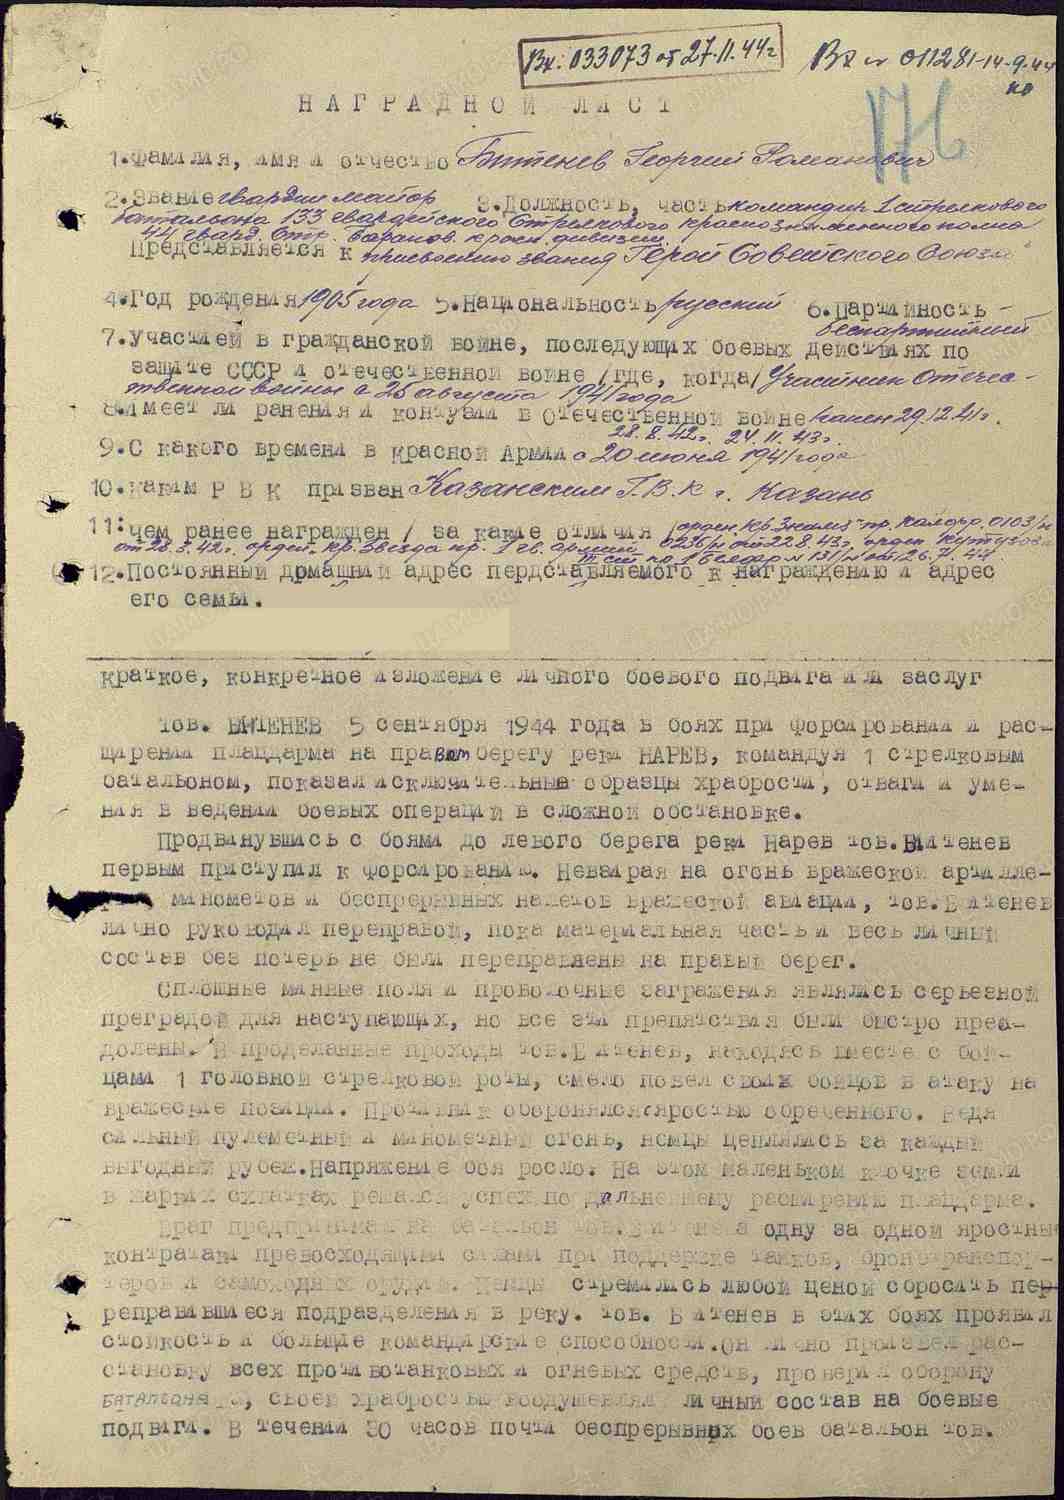 Вх. 033073 от 27.11.44г
Вх № 011281-14-9-44
176
НАГРАДНОЙ ЛИСТ
1.Фамилия, имя и отчество Битенев Георгий Романович
2.Звание гвардии майор 3.Должность, часть командир 1 стрелкового
батальона 133 гвардейского Стрелкового краснознаменного полка
44 гвард. Стр. Баранов. красн. дивизии.
Представляется к присвоению звания Герой Советского Союза
4.Год рождения 1905 года 5.Национальность русский 6.Партийность -
беспартийный
7.Участией в гражданской войне, последующих боевых действиях по
защите СССР и отечественной войне /где, когда/ Участник Отече-
ственной войны с 25 августа 1941 года
8.Имеет ли ранения и контузии в Отечественной войне ранен 29.12.41г.
28.8.42г. 24.11.43г.
9.С какого времени в Красной Армии с 20 июня 1941 года
10.Каким Р В К призван Казанским Г.В.К г. Казань
11.чем ранее награжден / за какие отличия /орден Кр.Знамя-пр. Калфр. 0103/н
от 28.3.42г. орден Кр.Звезда пр. 1 гв. армии 0236/н от 22.8.43г. орден Кутузова
пр. 1 Белфр. № 131/н от 26.7.44
12.Постоянный домашний адрес пердставляемого к награждению и адрес
его семьи.
Краткое, конкретное изложение личного боевого подвига или заслуг
Тов. БИТЕНЕВ 5 сентября 1944 года в боях при форсировании и рас-
ширении плацдарма на правом берегу реки НАРЕВ, командуя 1 стрелковым
батальоном, показал исключительные образцы храбрости, отваги и уме-
ния в ведении боевых операций в сложной обстановке.
Продвинувшись с боями до левого берега реки Нарев тов.Битенев
первым приступил к форсированию. Невзирая на огонь вражеской артилле-
минометов и беспрерывных налетов вражеской авиации, тов.Битенев
лично руководил переправой, пока материальная часть и весь личный
состав без потерь не были переправлены на правый берег.
Сплошные минные поля и проволочные заграждения являлись серьезной
преградой для наступающих, но все эти препятствия были быстро прео-
долены. В проделанные проходы тов.Битенев, находясь вместе с бой-
цами 1 головной стрелковой роты, смело повел своих бойцов в атаку на
вражеские позиции. Противник оборонялся с яростью обреченного. Ведя
сильный пулеметный и минометный огонь, немцы цеплялись за каждый
выгодный рубеж.Напряжение боя росло. На этом маленьком клочке земли
в жарких схватках решался успех по дальнейшему расширению плацдарма.
Враг предпринимал на батальон тов.Битенева одну за одной яростные
контратаки превосходящими силами при поддержке танков, бронетранспор-
теров и самоходных орудий. Немцы стремились любой ценой сбросить пер-
реправившиеся подразделения в реку. тов. Битенев в этих боях проявил
стойкость и большие командирские способности.Он лично произвел рас-
становку всех противотанковых и огневых средств, проверил оборону
батальона, своей храбростью воодушевлял личный состав на боевые
подвиги. В течении 30 часов почти беспрерывных боев батальон тов.